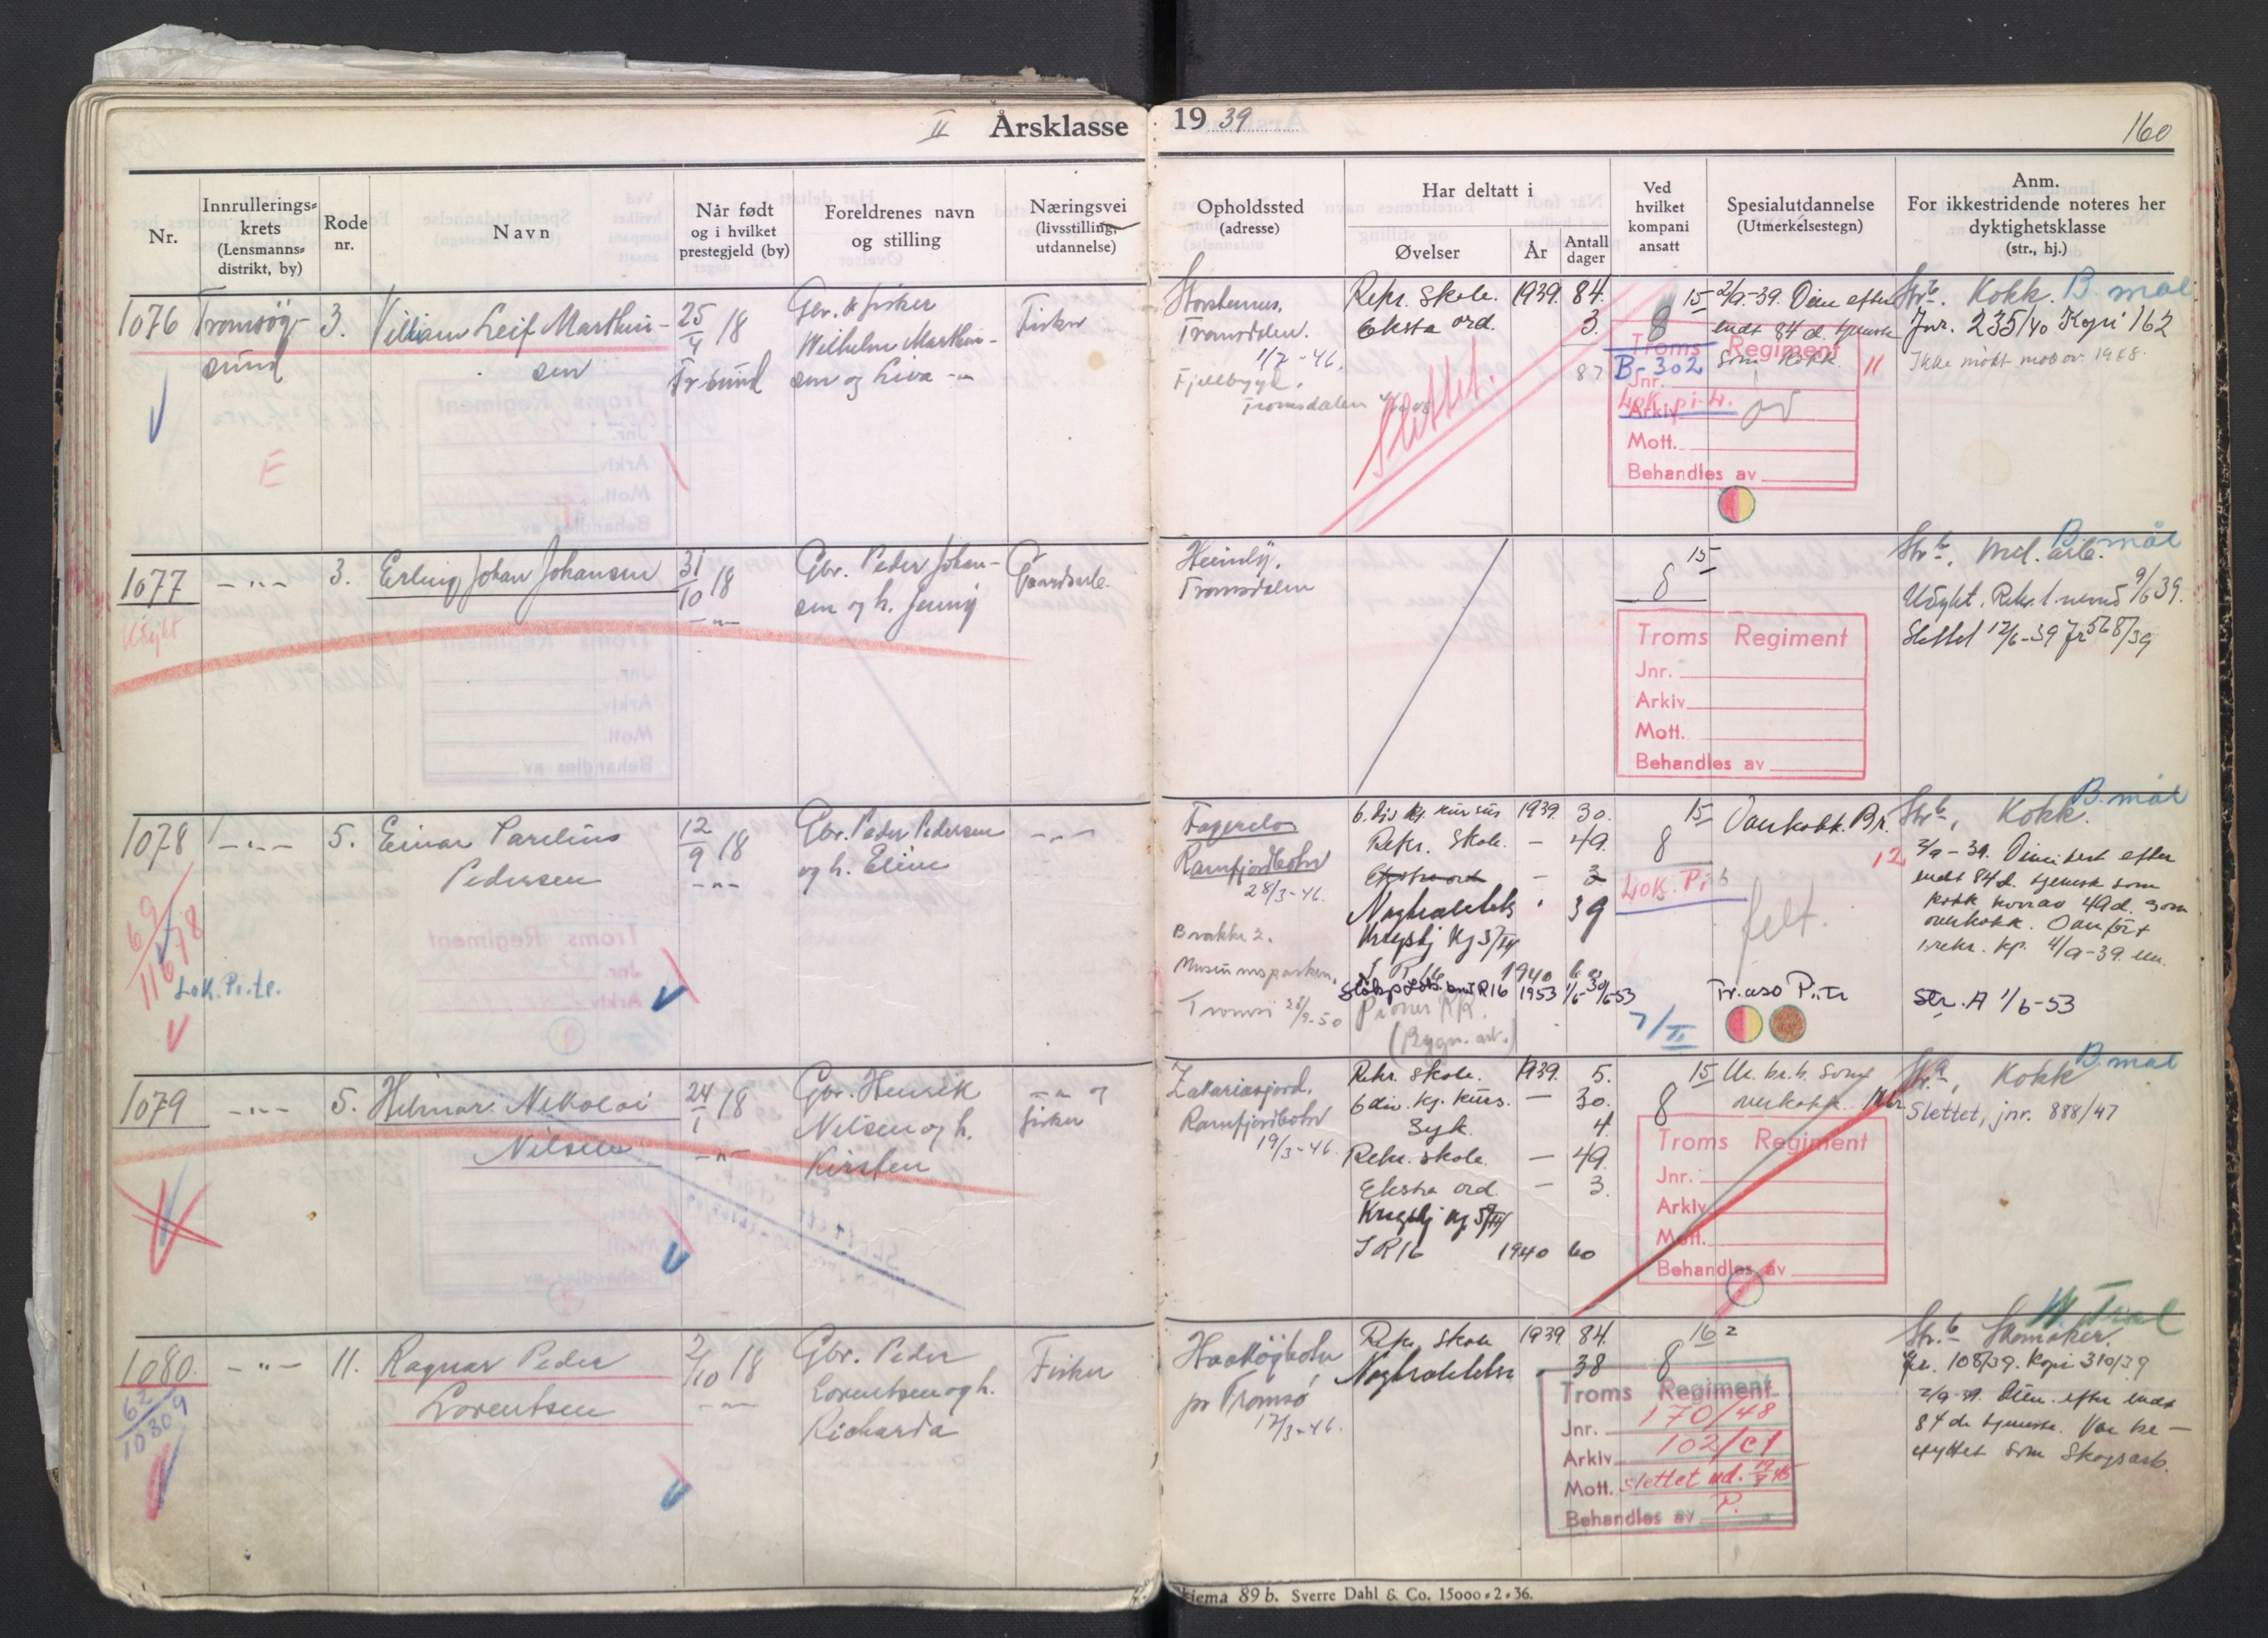 II Årsklasse 1939
160
Nr.
Innrullerings-
krets
(Lensmanns-
distrikt, by)
Rode
nr.
Navn
Når født
og i hvilket
prestegjeld (by)
Foreldrenes navn
og stilling
Næringsvei
(livsstilling,
utdannelse)
Opholdssted
(adresse)
Har deltatt i
Øvelser
År
Antall
dager
Ved
hvilket
kompani
ansatt
Spesialutdannelse
(Utmerkelsestegn)
Anm.
For ikkestridende noteres her
dyktighetsklasse
(str., hj.)
1076
Tromsøy-
sund
3.
Villiam Leif Marthin-
sen
25/4 18
Tr.sund
Gbr. & fisker
Wilhelm Marthin-
sen og Liva
Fisker
E
Storstennes,
Tromsdalen.
1/7-46.
Fjellbygd,
Tromsdalen
Rekr. skole. 1939. 84.
Ekstra ord. 3.
87
Slettet.
15
8
B-302
Lok. pi.
2/9-39. Dim efter
endt 84 d. tjeneste
som kokk. 11
Troms Regiment
Jnr.
Arkiv
Mott.
Behandles av
Str. b. Kokk. B. mål
Jnr. 235/40 Kopi 162
Ikke møtt mob.ov. 1948.
1077
-"-
3.
Erling Johan Johansen
31/10 18
-"-
Gbr. Peder Johan-
sen og h. Jenny
Gaardsarb.
Udykt
Heimly,
Tromsdalen
15
8
Troms Regiment
Jnr.
Arkiv
Mott.
Behandles av
Str. b, Mil. arb. B. mål
Udykt. Rekr. 1. nemd 9/6 39.
Slettet 12/6-39 Jr 568/39
1078
-"-
5.
Einar Parelius
Pedersen
12/9 18
-"-
Gbr. Peder Pedersen
og h. Eline
-"-
69
11678
Lok. Pi. tr.
Fagerelv
Ramfjordbotn
28/3-46.
Brakke 2.
Museumsparken,
Tromsø 28/9-50
6. Div. kj. kursus 1939. 30.
Rekr. skole. - 49.
Ekstra ord - 3
Nøytralitets " 39
Krigstj Kg 5/III
I R 16 1940 60
1953 1/6-30/6-53
Pioner KR.
(Bygn. art.)
15
8
Lok. Pi
7/II
Overkokk. Br.
12
felt.
Tr. aso Pi.tr
Str. b, Kokk. B. mål
2/9-39. Dimitert efter
endt 84 d. tjeneste som
kokk hvorav 49 d. som
overkokk. Overført
1 rekr. kp. 4/9-39.
Str. A 1/6-53
1079
-"-
5.
Hilmar Nikolai
Nilsen
24/1 18
-"-
Gbr. Henrik
Nilsen og h.
Kirsten
-"- og
fisker
Zakariasjord,
Ramfjordbotn
19/3-46.
Rekr. skole. 1939. 5.
6 div. kj. kurs. - 30.
Syk. 4.
Rekr. skole. - 49.
Ekstra ord. - 3.
Krigstj Kg 5/III
I R 16 1940 60
15
8
overkokk.
Troms Regiment
Jnr.
Arkiv
Mott.
Behandles av
Kokk B. mål
Slettet, jnr. 888/47
1080.
-"-
11.
Ragnar Peder
Lorentsen
2/10 18
-"-
Gbr. Peder
Lorentsen og h.
Richarda
Fisker
62
10309
Haakøybotn
pr Tromsø
12/3-46.
Rekr. skole 1939. 84.
Nøytraliteten 38
16 2
8
Troms Regiment
Jnr. 170/48
Arkiv 102/C1
Mott. slettet ud.
Behandles av P.
Str. b Skomaker.
Jr. 108/39. Kopi 310/39
2/9-39. Dim. efter endt
84 ds tjeneste. Var be-
skyttet som Skogsarb.
Skjema 89 b. Sverre Dahl & Co. 15000-2-36.